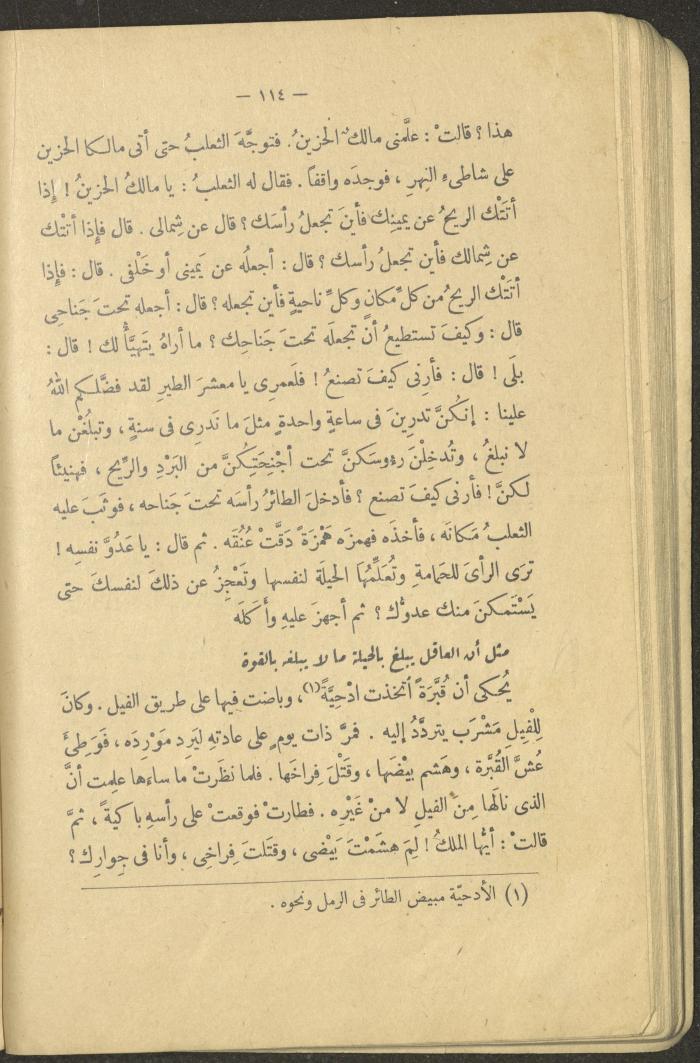 — ١١٤ —
هذا ؟ قالتْ : علَّمنى مالكٌ الحزينُ . فتوجَّهَ الثعلبُ حتى أتى مالكا الحزين
على شاطىءِ النهرِ ، فوجدَه واقفاً . فقال له الثعلبُ : يا مالكُ الحزينُ ! إِذا
أتتْك الريحُ عن يمينِك فأينَ تجعلُ رأسَك ؟ قال عن شِمالى . قال فإِذا أتتْك
عن شِمالك فأين تجعلُ رأسك ؟ قال : أجعلُه عن يَمِينى أو خَلْفى . قال : فإِذا
أتتْك الريحُ من كلِّ مكانٍ وكلِّ ناحيةٍ فأين تجعله ؟ قال : أجعله تحتَ جَناحِى
قال : وكيفَ تستطيعُ أن تجعلَه تحتَ جَناحِك ؟ ما أراهُ يَتَهيَّأُ لك ! قال :
بلَى ! قال : فأرِنى كيفَ تصنعُ ! فلَعمرِى يا معشرَ الطيرِ لقد فضَّلكم اللهُ
علينا : إنكُنَّ تدرِينَ فى ساعةٍ واحدةٍ مثلَ ما نَدرِى فى سنةٍ ، وتبلُغْن ما
لا نبلغُ ، وتُدخِلْنَ رءوسَكنَّ تحت أجْنِحَتِكُنَّ من البَرْدِ والرِّيح ، فهنيئاً
لكنَّ ! فأرنى كيفَ تصنع ؟ فأدخلَ الطائرُ رأسَه تحتَ جَناحه ، فوثَبَ عليه
الثعلبُ مَكانَه ، فأخذَه فهمزَه هَمْزَةً دَقَّتْ عُنُقَه . ثم قال : يا عَدُوَّ نفسِه !
ترَى الرأىَ للحَمامةِ وتُعَلِّمُهَا الحيلَة لنفسها وتَعْجِزُ عن ذلكَ لنفسكَ حتى
يَسْتَمكنَ منك عدوُّك ؟ ثم أجهزَ عليهِ وأَكلَه
مثل أن العاقل يبلغ بالحيلة ما لا يبلغه بالقوة
يُحكى أن قُبَّرَةً اتخذت ادْحِيَّةً(١) ، وباضت فيها على طريق الفيل . وكانَ
لِلْفِيلِ مَشْرَب يتردَّدُ إليه . فمرَّ ذات يومٍ على عادتهِ ليَرِد مَوْرِدَه ، فَوَطِئَ
عُشَّ القُبَّرة ، وهَشم بيْضَها ، وقَتَلَ فِراخَها . فلما نظَرتْ ما ساءها علِمت أنَّ
الذى نالَها مِنَ الفيلِ لا منْ غَيْرِه . فطارتْ فوقعتْ على رأسِهِ باكيةً ، ثمَّ
قالتْ : أيُّها الملكُ ! لِمَ هشَمْتَ بَيْضى ، وقتَلتَ فِراخِى ، وأنا فى جِوارِك ؟
(١) الأدحيّة مبيض الطائر فى الرمل ونحوه .